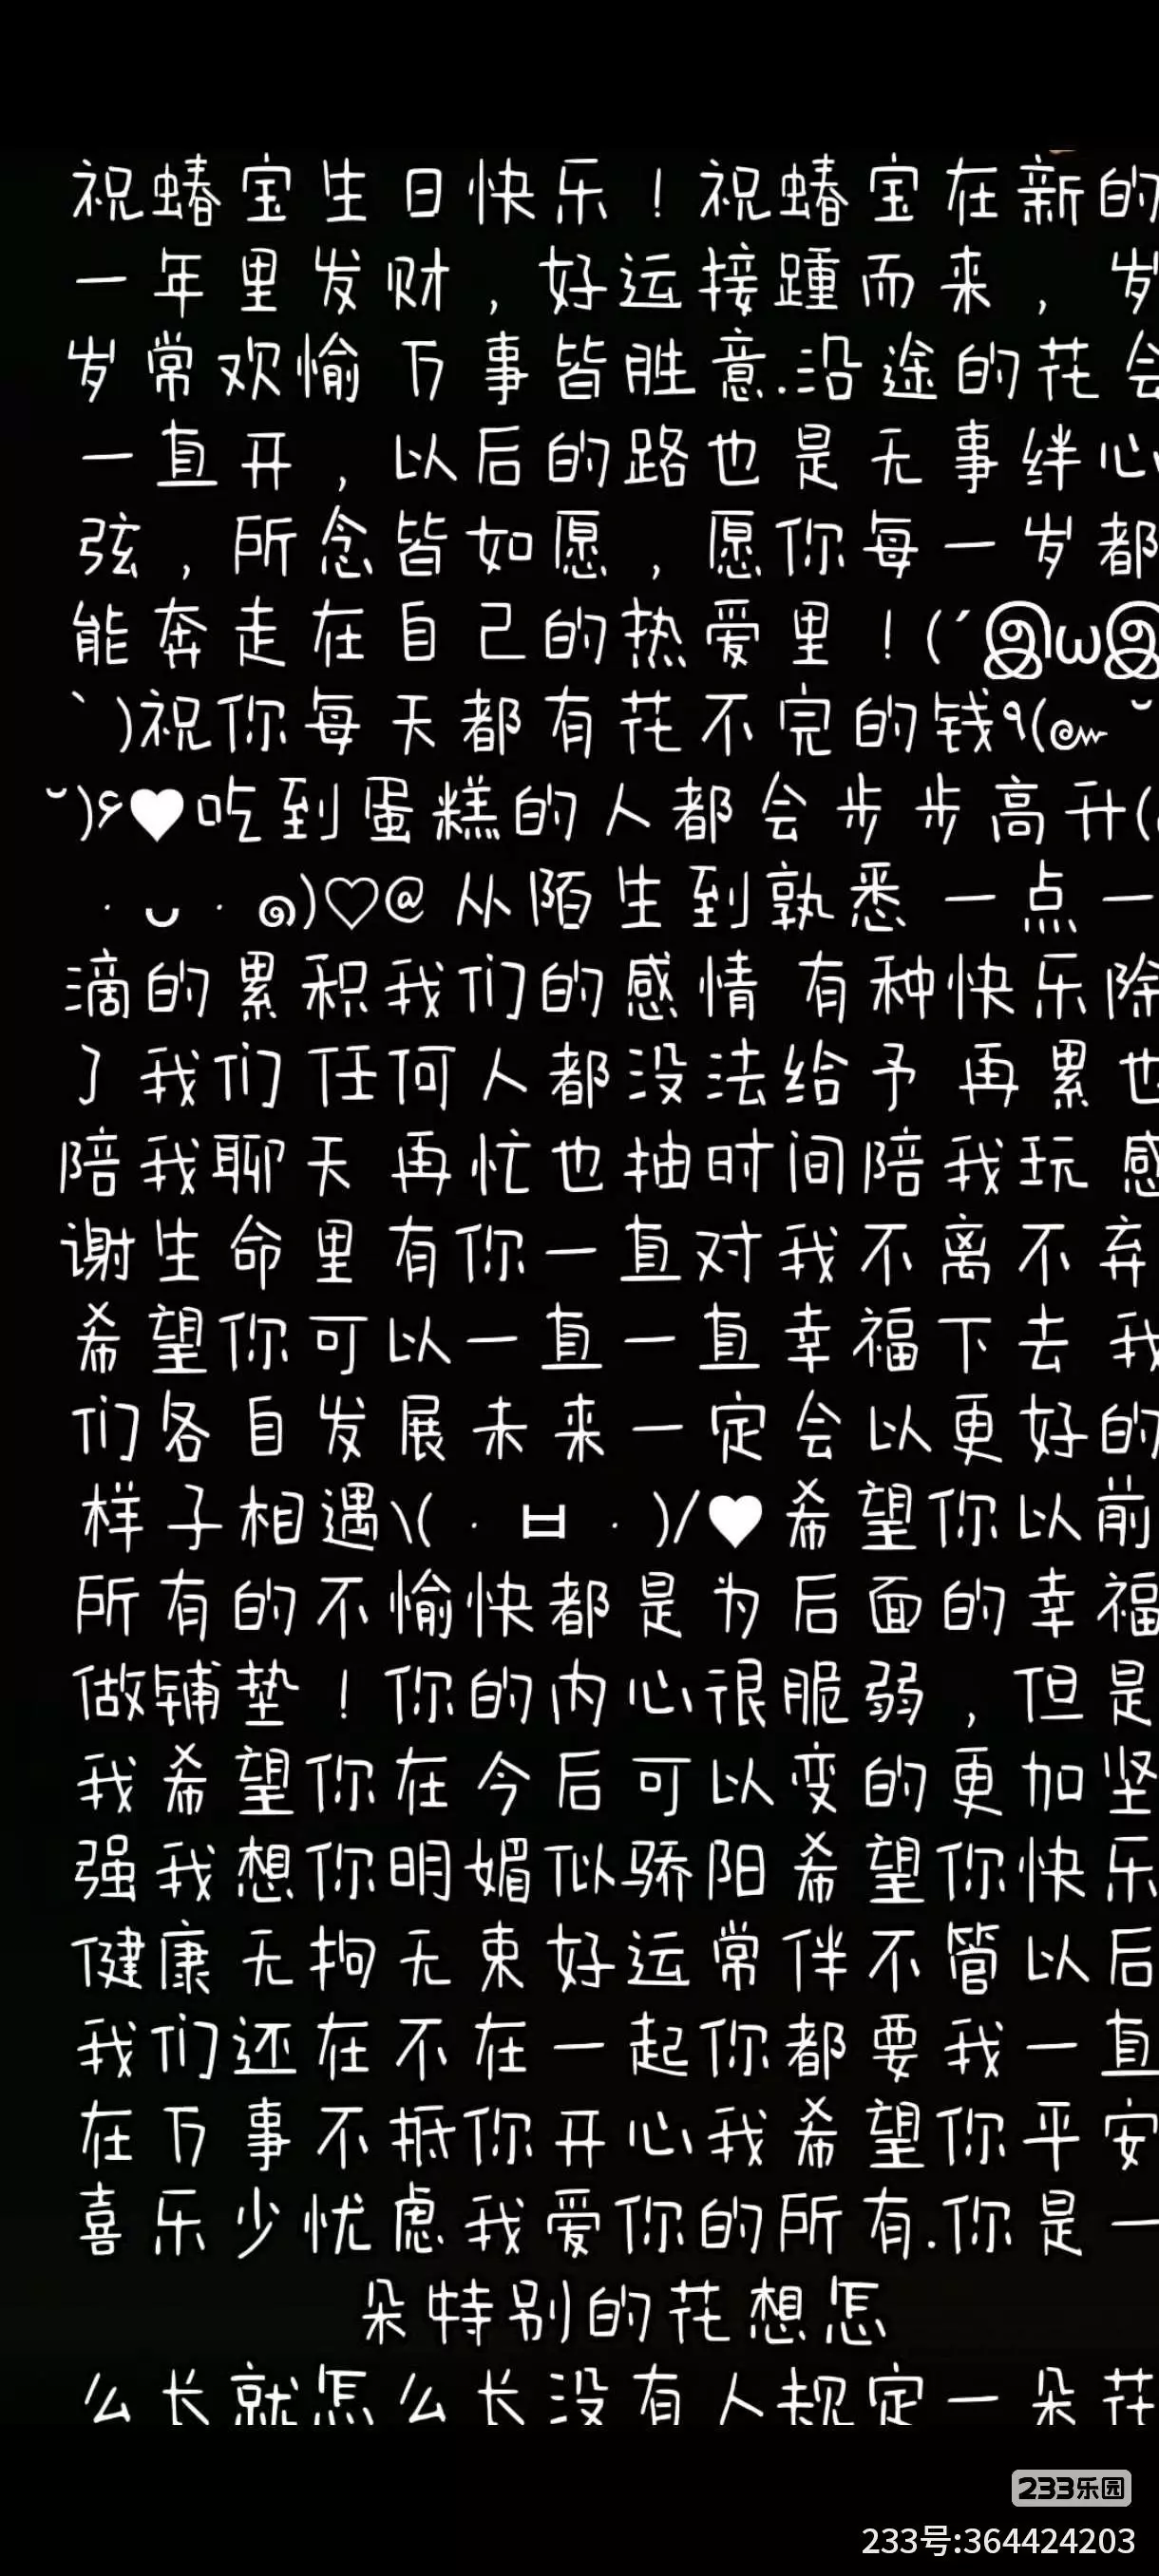 祝蝽宝生日快乐！祝蝽宝在新的
一年里发财，好运接踵而来，岁
岁常欢愉 万事皆胜意.沿途的花会
一直开，以后的路也是无事绊心
弦，所念皆如愿，愿你每一岁都
能奔走在自己的热爱里！(´இωஇ
`)祝你每天都有花不完的钱٩(๛ ˘
˘)۶♥吃到蛋糕的人都会步步高升(
· ᴗ · ๑)♡@ 从陌生到孰悉 一点一
滴的累积我们的感情 有种快乐除
了我们 任何人都没法给予 再累也
陪我聊天 再忙也抽时间陪我玩 感
谢生命里有你一直对我不离不弃
希望你可以一直一直幸福下去 我
们各自发展未来一定会以更好的
样子相遇\( · ㅂ · )/♥希望你以前
所有的不愉快都是为后面的幸福
做辅垫！你的内心很脆弱，但是
我希望你在今后可以变的更加坚
强我想你明媚似骄阳希望你快乐
健康无拘无束好运常伴不管以后
我们还在不在一起你都要我一直
在万事不抵你开心我希望你平安
喜乐少忧虑我爱你的所有.你是一
朵特别的花想怎
么长就怎么长没有人规定一朵花
233乐园
233号:364424203